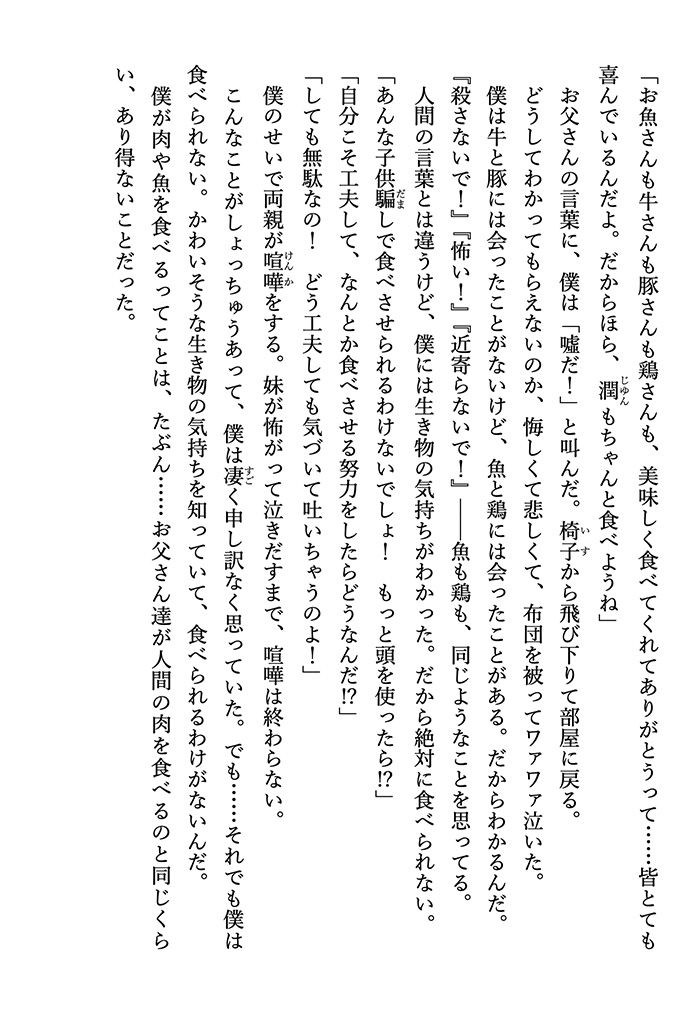 「お魚さんも牛さんも豚さんも鶏さんも、美味しく食べてくれてありがとうって……皆とても
喜んでいるんだよ。だからほら、潤もちゃんと食べようね」
お父さんの言葉に、僕は「嘘だ！」と叫んだ。椅子から飛び下りて部屋に戻る。
どうしてわかってもらえないのか、悔しくて悲しくて、布団を被ってワァワァ泣いた。
僕は牛と豚には会ったことがないけど、魚と鶏には会ったことがある。だからわかるんだ。
『殺さないで！』『怖い！』『近寄らないで！』――魚も鶏も、同じようなことを思ってる。
人間の言葉とは違うけど、僕には生き物の気持ちがわかった。だから絶対に食べられない。
「あんな子供騙しで食べさせられるわけないでしょ！　もっと頭を使ったら!?」
「自分こそ工夫して、なんとか食べさせる努力をしたらどうなんだ!?」
「しても無駄なの！　どう工夫しても気づいて吐いちゃうのよ！」
僕のせいで両親が喧嘩をする。妹が怖がって泣きだすまで、喧嘩は終わらない。
こんなことがしょっちゅうあって、僕は凄く申し訳なく思っていた。でも……それでも僕は
食べられない。かわいそうな生き物の気持ちを知っていて、食べられるわけがないんだ。
僕が肉や魚を食べるってことは、たぶん……お父さん達が人間の肉を食べるのと同じくら
い、あり得ないことだった。